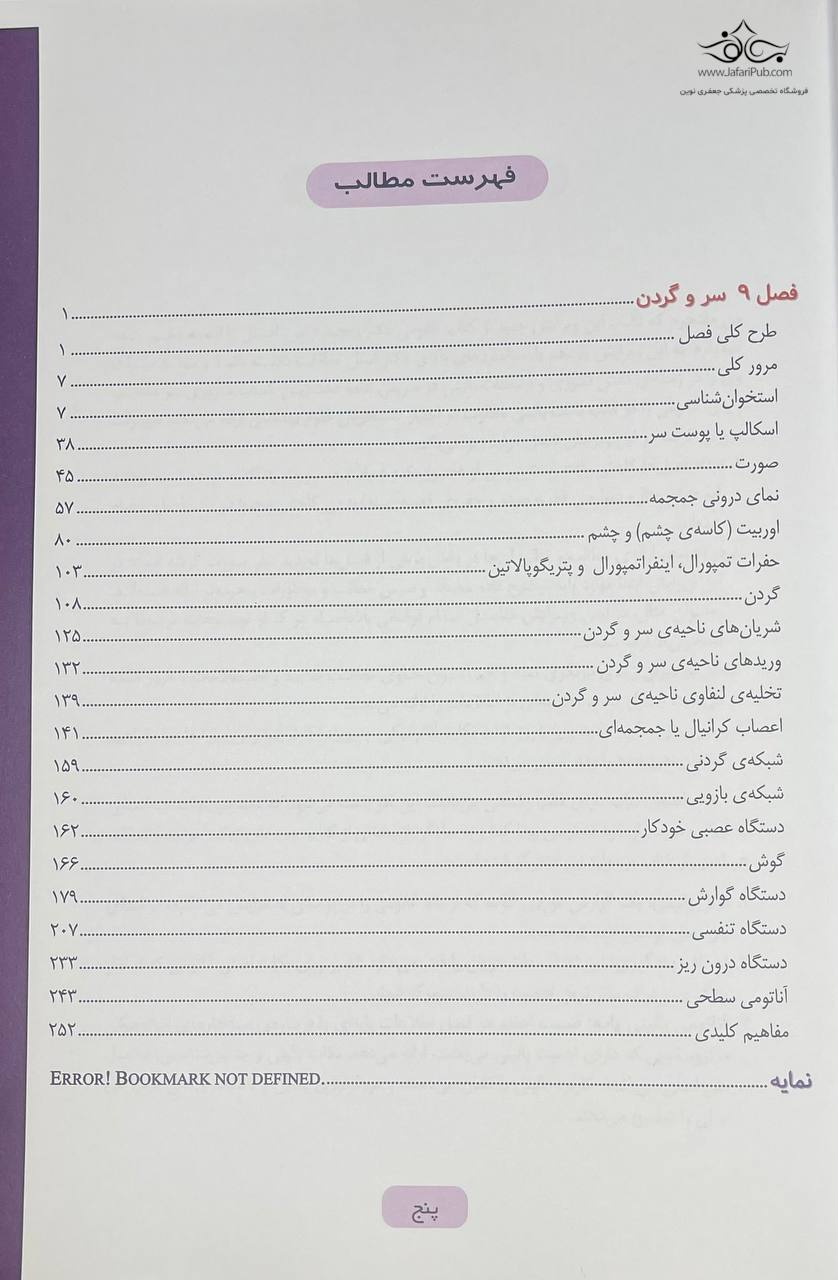 www.JafariPub.com
فروشگاه تخصصی پزشکی جعفری نوین
فهرست مطالب
فصل ۹ سر و گردن ۱
طرح کلی فصل ۱
مرور کلی ۷
استخوان‌شناسی ۷
اسکالپ یا پوست سر ۳۸
صورت ۴۵
نمای درونی جمجمه ۵۷
اوربیت (کاسه‌ی چشم) و چشم ۸۰
حفرات تمپورال، اینفراتمپورال و پتریگوپالاتین ۱۰۳
گردن ۱۰۸
شریان‌های ناحیه‌ی سر و گردن ۱۲۵
وریدهای ناحیه‌ی سر و گردن ۱۳۲
تخلیه‌ی لنفاوی ناحیه‌ی سر و گردن ۱۳۹
اعصاب کرانیال یا جمجمه‌ای ۱۴۱
شبکه‌ی گردنی ۱۵۹
شبکه‌ی بازویی ۱۶۰
دستگاه عصبی خودکار ۱۶۲
گوش ۱۶۶
دستگاه گوارش ۱۷۹
دستگاه تنفسی ۲۰۷
دستگاه درون ریز ۲۳۳
آناتومی سطحی ۲۴۳
مفاهیم کلیدی ۲۵۲
نمایه ERROR! BOOKMARK NOT DEFINED.
پنج